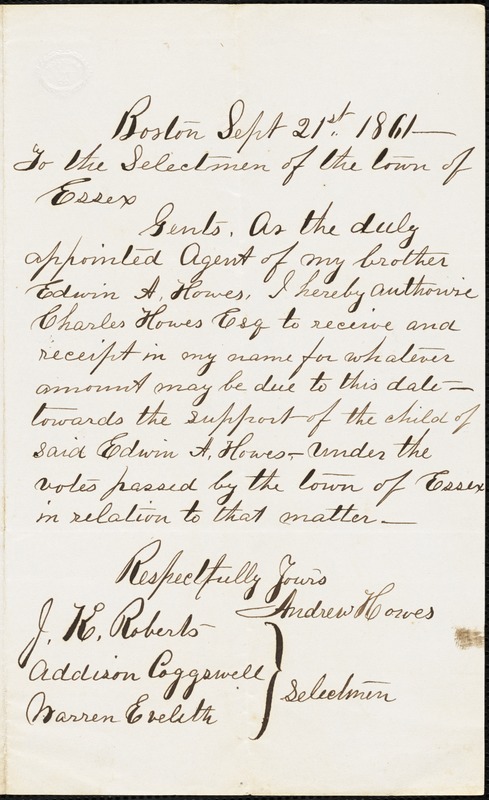 Boston Sept 21st. 1861—
To the Selectmen of the town of
Essex
Gents. As the duly
appointed Agent of my brother
Edwin A. Howes, I hereby authorise
Charles Howes Esq to receive and
receipt in my name for whatever
amount may be due to this date—
towards the support of the child of
said Edwin A. Howes,— under the
votes passed by the town of Essex
in relation to that matter.—
Respectfully Yours
Andrew Howes
J. K. Roberts
Addison Coggswell
Warren Eveleth
Selectmen